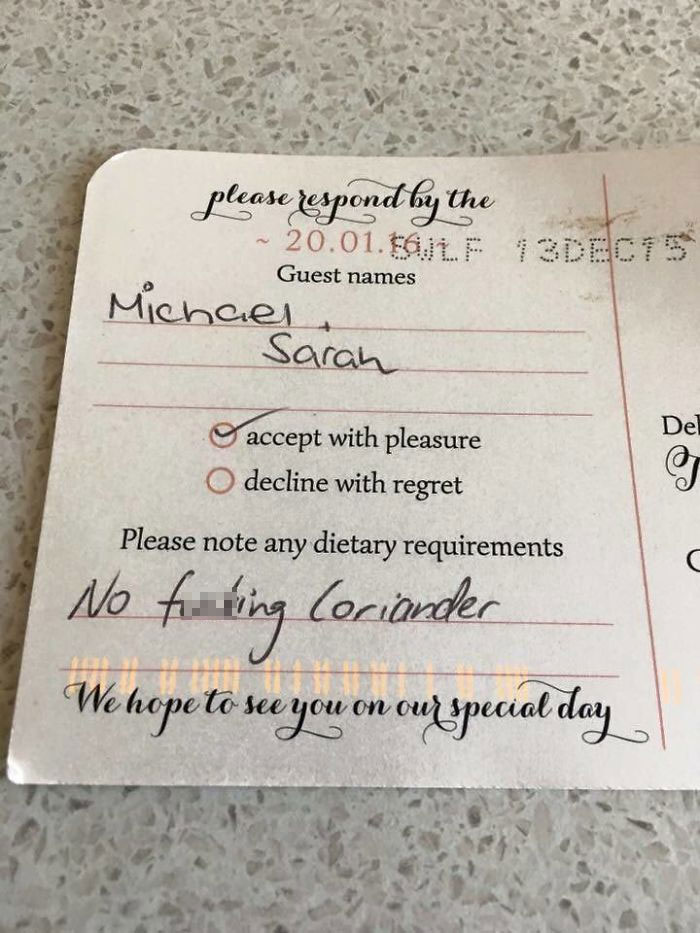 please respond by the
~ 20.01.16 ~
BWLF 13DEC15
Guest names
Michael +
Sarah
accept with pleasure
decline with regret
Please note any dietary requirements
No f ing Coriander
We hope to see you on our special day
Del
C